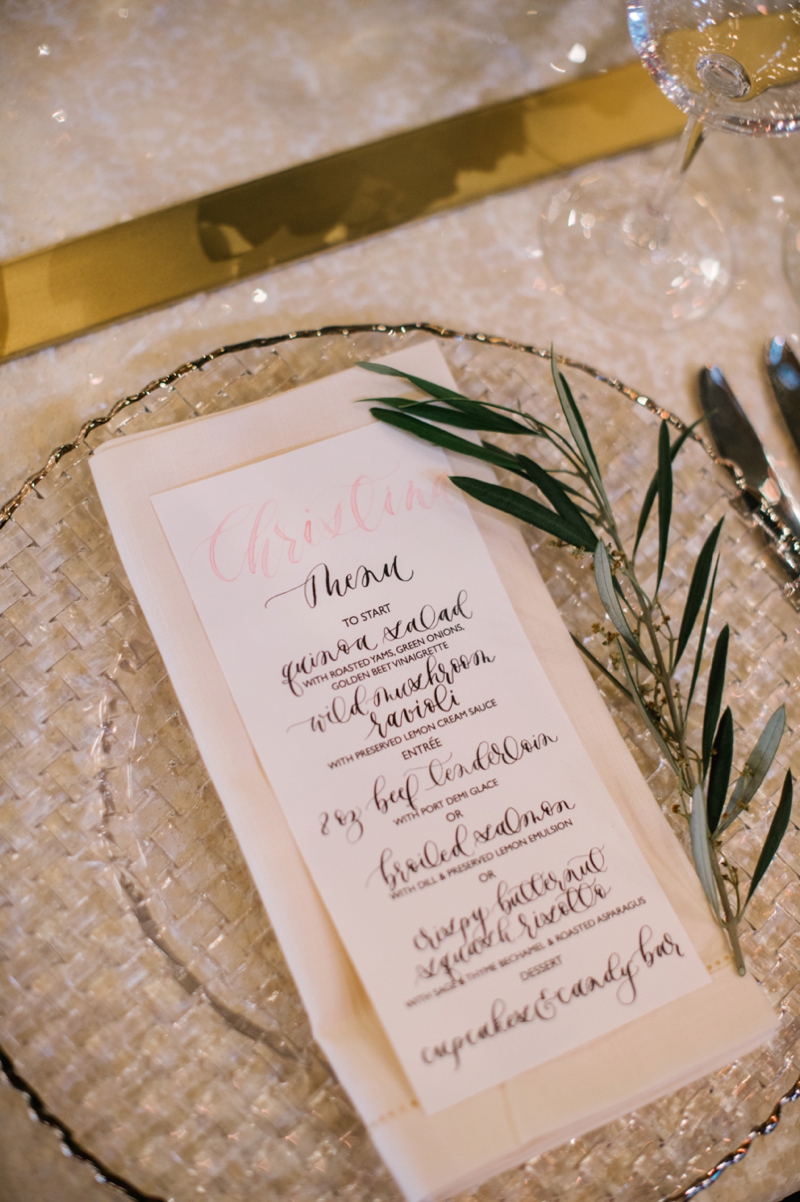 Christina
Menu
TO START
quinoa salad
WITH ROASTED YAMS, GREEN ONIONS,
GOLDEN BEET VINAIGRETTE
wild mushroom
ravioli
WITH PRESERVED LEMON CREAM SAUCE
ENTRÉE
8 oz beef tenderloin
WITH PORT DEMI GLACE
OR
broiled salmon
WITH DILL & PRESERVED LEMON EMULSION
OR
crispy butternut
squash risotto
WITH SAGE & THYME BECHAMEL & ROASTED ASPARAGUS
DESSERT
cupcakes & candy bar